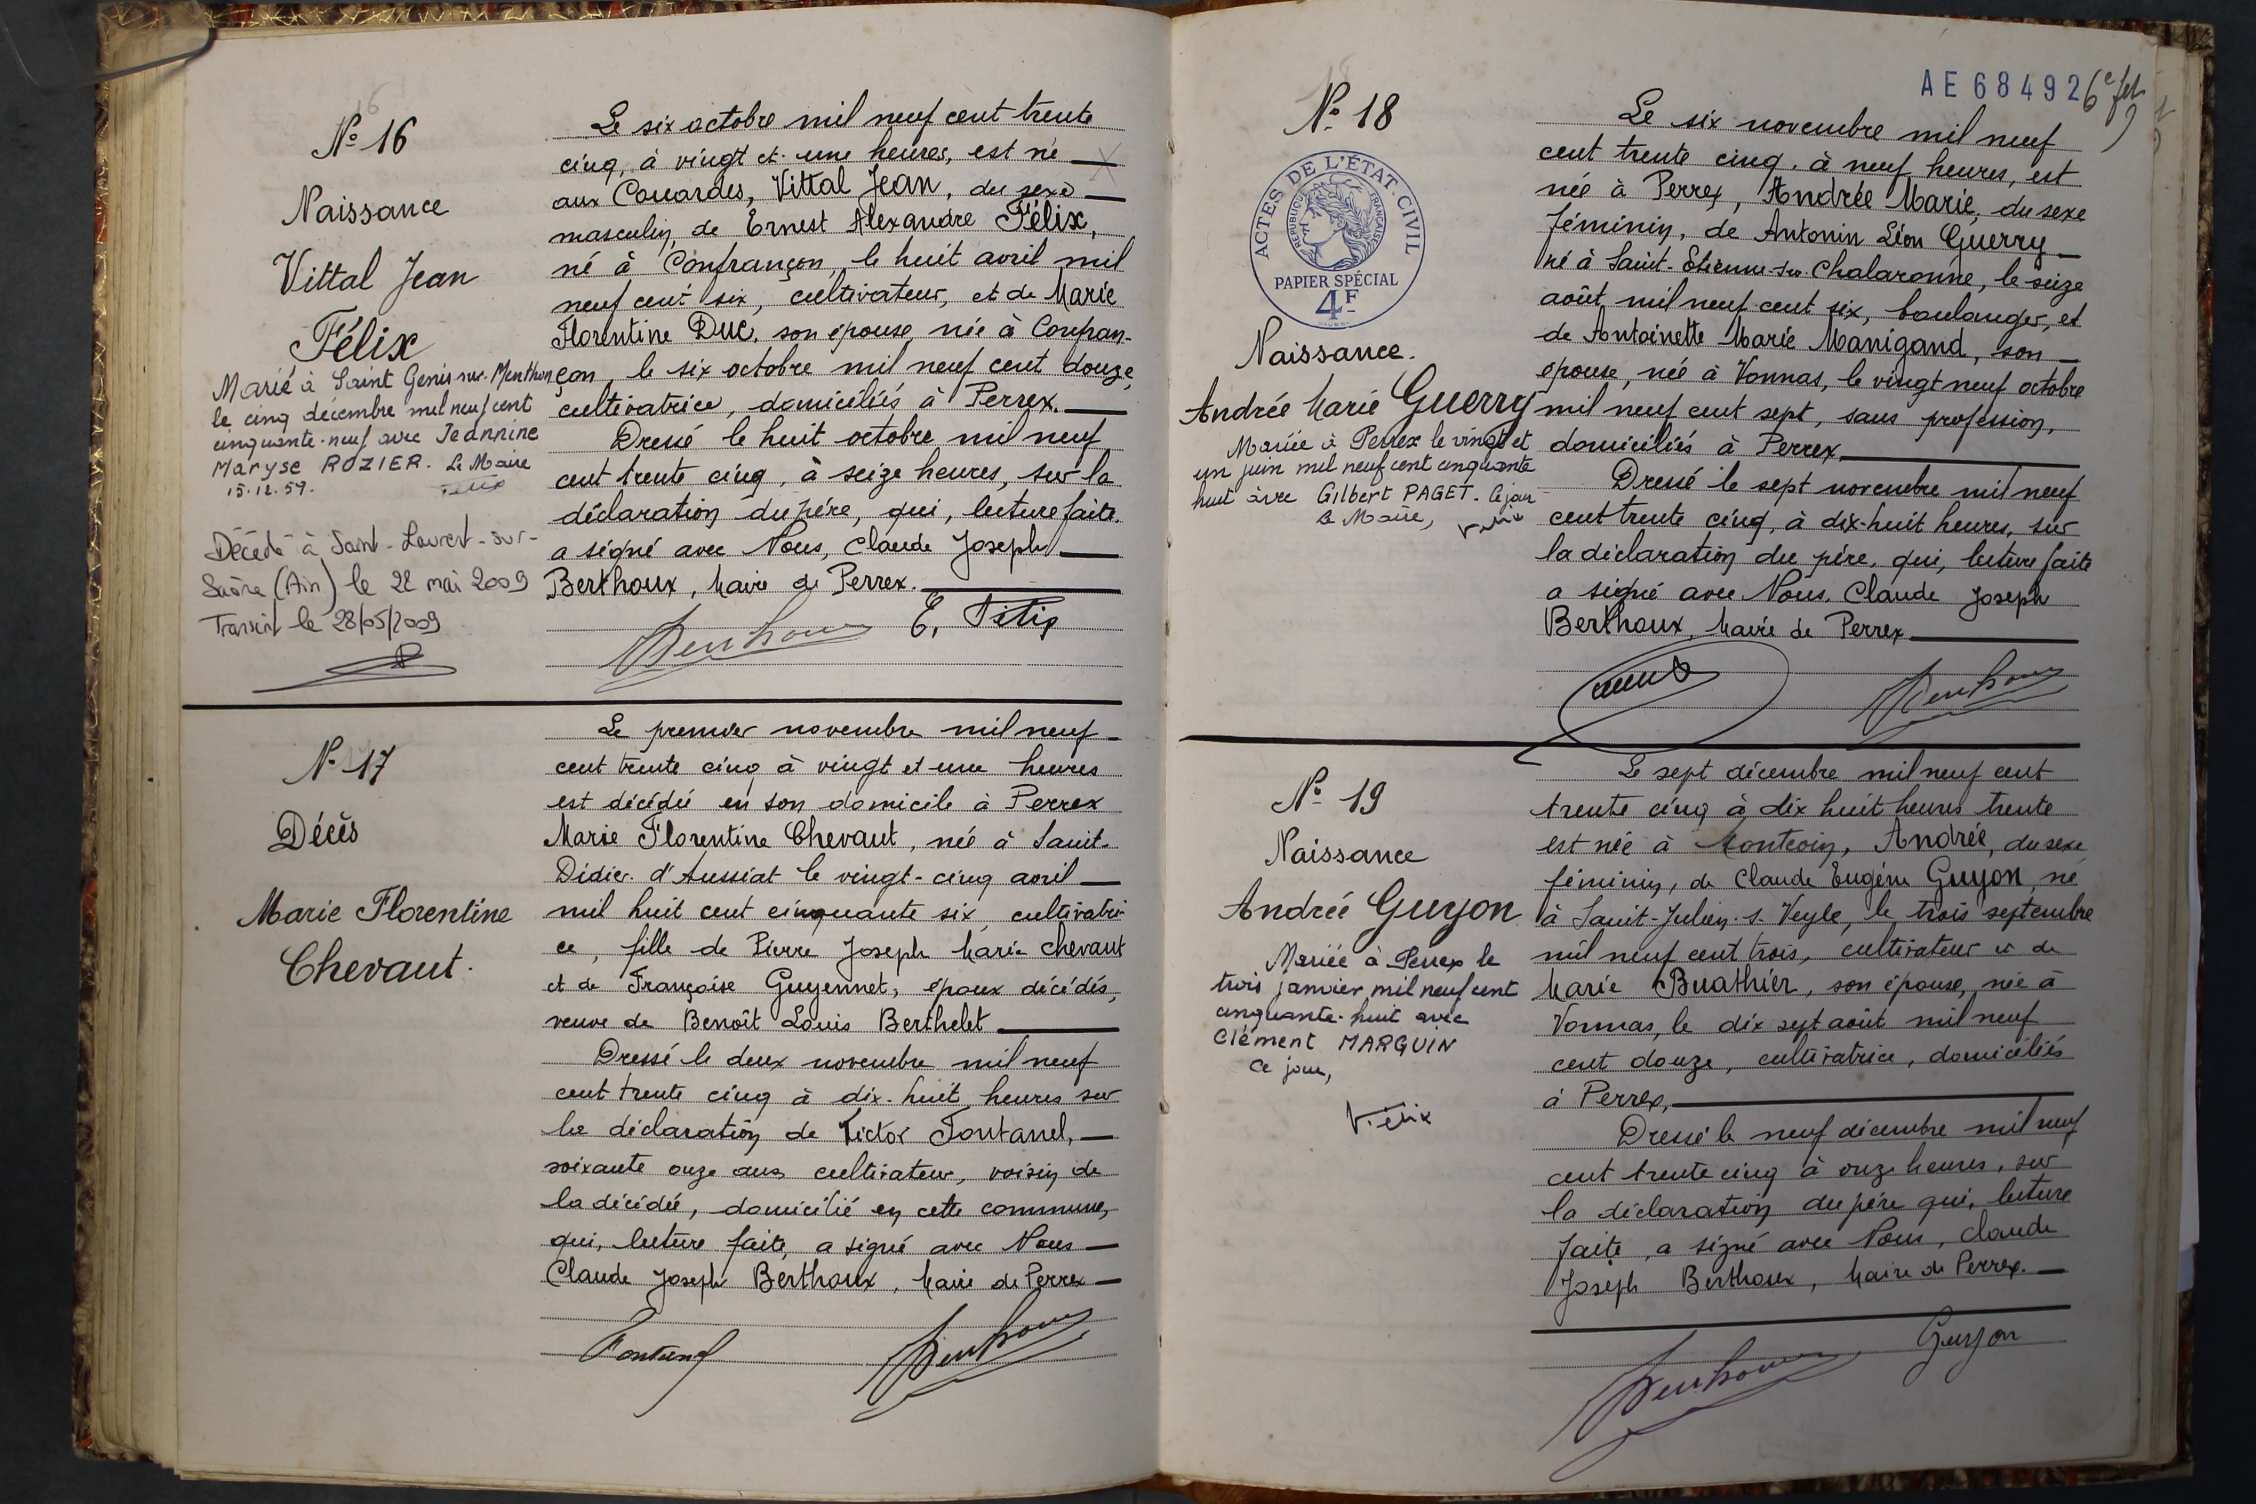 Nº 16
Naissance
Vittal Jean
Félix
Marié à Saint Genis sur Menthon
le cinq décembre mil neuf cent
cinquante-neuf avec Jeannine
Maryse ROZIER. Le Maire
15.12.59.
Félix
Décédé à Saint-Laurent-sur-
Saône (Ain) le 22 mai 2009
Transcrit le 28/05/2009
Le six octobre mil neuf cent trente
cinq, à vingt et une heures, est né
aux Couardes, Vittal Jean, du sexe
masculin, de Ernest Alexandre Félix,
né à Confrançon, le huit avril mil
neuf cent six, cultivateur, et de Marie
Florentine Duc, son épouse, née à Confran-
çon, le six octobre mil neuf cent douze,
cultivatrice, domiciliés à Perrex.
Dressé le huit octobre mil neuf
cent trente cinq, à seize heures, sur la
déclaration du père, qui, lecture faite,
a signé avec Nous, Claude Joseph
Berthoux, Maire de Perrex.
Berthoux E. Félix
Nº 17
Décès
Marie Florentine
Chevaut.
Le premier novembre mil neuf
cent trente cinq à vingt et une heures
est décédée en son domicile à Perrex
Marie Florentine Chevaut, née à Saint-
Didier d'Aussiat le vingt-cinq avril
mil huit cent cinquante six, cultivatri-
ce, fille de Pierre Joseph Marie Chevaut
et de Françoise Guyennet, époux décédés,
veuve de Benoît Louis Berthelet
Dressé le deux novembre mil neuf
cent trente cinq à dix-huit heures sur
la déclaration de Victor Fontanel,
soixante onze ans, cultivateur, voisin de
la décédée, domicilié en cette commune,
qui, lecture faite, a signé avec Nous
Claude Joseph Berthoux, Maire de Perrex
Fontanel Berthoux
AE 68492 6e fet
9
Nº 18
ACTES DE L'ÉTAT-CIVIL
RÉPUBLIQUE FRANÇAISE
PAPIER SPÉCIAL
4F
Naissance.
Andrée Marie Guerry
Mariée à Perrex le vingt et
un juin mil neuf cent cinquante
huit avec Gilbert PAGET. Ce jour
Le Maire, Félix
Le six novembre mil neuf
cent trente cinq, à neuf heures, est
née à Perrex, Andrée Marie, du sexe
féminin, de Antonin Léon Guerry
né à Saint-Etienne-sur-Chalaronne, le seize
août mil neuf cent six, boulanger, et
de Antoinette Marie Manigand, son
épouse, née à Vonnas, le vingt neuf octobre
mil neuf cent sept, sans profession,
domiciliés à Perrex
Dressé le sept novembre mil neuf
cent trente cinq, à dix-huit heures, sur
la déclaration du père, qui, lecture faite
a signé avec Nous, Claude Joseph
Berthoux, Maire de Perrex
Berthoux
Nº 19
Naissance
Andrée Guyon
Mariée à Perrex le
trois janvier mil neuf cent
cinquante-huit avec
Clément MARGUIN
Ce jour,
V. Félix
Le sept décembre mil neuf cent
trente cinq à dix huit heures trente
est née à Montcoin, Andrée, du sexe
féminin, de Claude Eugène Guyon, né
à Saint-Julien-s. Veyle, le trois septembre
mil neuf cent trois, cultivateur et de
Marie Buathier, son épouse, née à
Vonnas, le dix sept août mil neuf
cent douze, cultivatrice, domiciliés
à Perrex,
Dressé le neuf décembre mil neuf
cent trente cinq à onze heures, sur
la déclaration du père qui, lecture
faite, a signé avec Nous, Claude
Joseph Berthoux, Maire de Perrex.
Berthoux Guyon